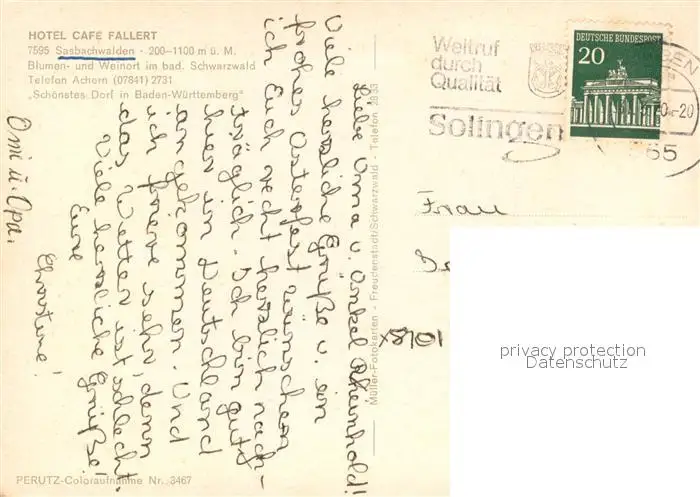 HOTEL CAFE FALLERT
7595 Sasbachwalden - 200-1100 m ü. M.
Blumen- und Weinort im bad. Schwarzwald
Telefon Achern (07841) 2731
„Schönstes Dorf in Baden-Württemberg“
Liebe Oma u. Onkel Rheinhold!
Viele herzliche Grüße u. ein
frohes Osterfest wünschen
ich Euch recht herzlich nach-
träglich. Ich bin gut
hier in Deutschland
angekommen. Und
ich freue sehr, denn
das Wetter ist schlecht.
Viele herzliche Grüße!
Eure
Christine!
Omi u. Opa.
PERUTZ-Coloraufnahme Nr. 3467
Müller-Fotokarten - Freudenstadt/Schwarzwald - Telefon 2933
Weltruf
durch
Qualität
Solingen
DEUTSCHE BUNDESPOST
20
-20
65
Frau
x8701
privacy protection
Datenschutz